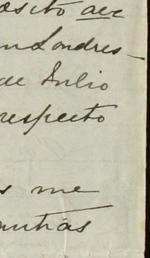 ósito del
en Londres -
de Julio
respecto
s me
entras